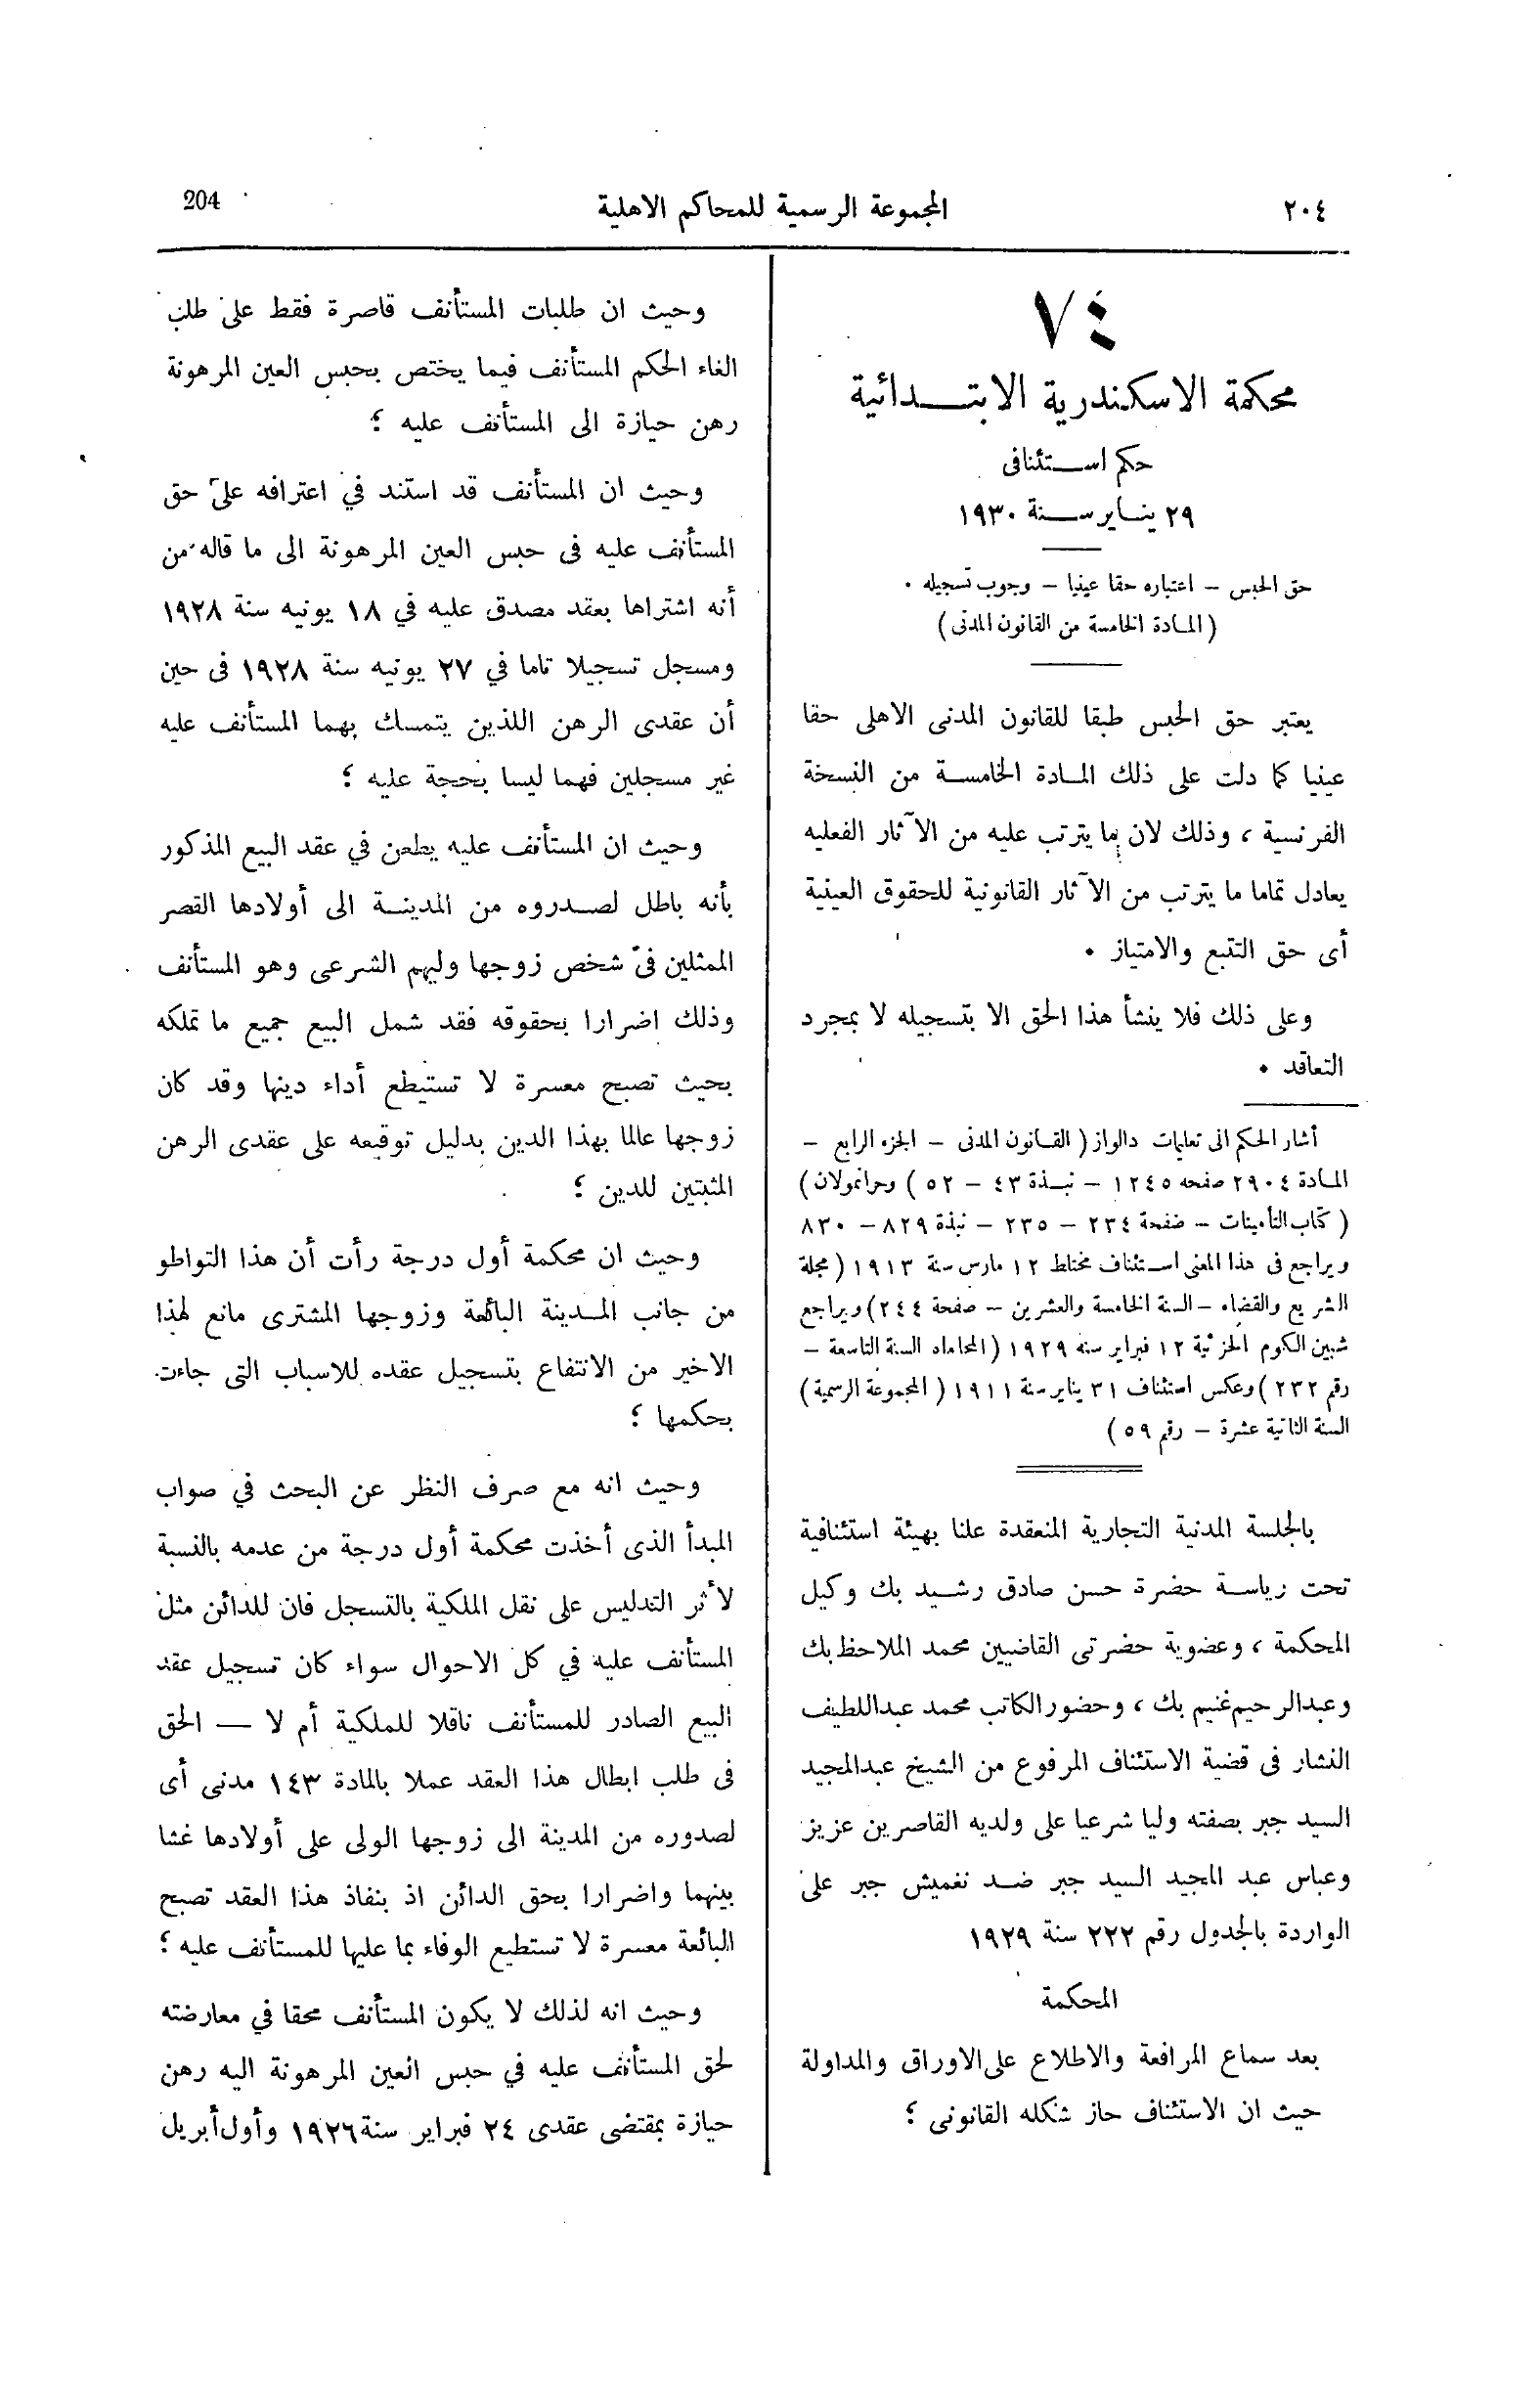 ٢٠٤
المجموعة الرسمية للمحاكم الاهلية
204
٧٤
محكمة الاسكندرية الابتــــدائية
حكم اســـتئنافى
٢٩ ينــاير ســـنة ١٩٣٠
حق الحبس – اعتباره حقا عينيا – وجوب تسجيله .
( المــادة الخامسة من القانون المدنى )
يعتبر حق الحبس طبقا للقانون المدنى الاهلى حقا
عينيا كما دلت على ذلك المــادة الخامســة من النسخة
الفرنسية ، وذلك لان ما يترتب عليه من الآثار الفعليه
يعادل تماما ما يترتب من الآثار القانونية للحقوق العينية
أى حق التتبع والامتياز .
وعلى ذلك فلا ينشأ هذا الحق الا بتسجيله لا بمجرد
التعاقد .
أشار الحكم الى تعليمات دالواز ( القــانون المدنى – الجزء الرابع –
المــادة ٢٩٠٤ صفحه ١٢٤٥ – نبــذة ٤٣ – ٥٢ ) وجرانمولان )
( كتاب التأمينات – صفحة ٢٣٤ – ٢٣٥ – نبذة ٨٢٩ – ٨٣٠
ويراجع فى هذا المعنى اســتئناف مختلط ١٢ مارس سنة ١٩١٣ ( مجلة
التشريع والقضاء – السنة الخامسة والعشرين – صفحة ٢٤٤ ) ويراجع
شبين الكوم الجزئية ١٢ فبراير سنه ١٩٢٩ ( المحاماه السنة التاسعة –
رقم ٢٣٢ ) وعكس استئناف ٣١ يناير سنة ١٩١١ ( المجموعة الرسمية )
السنة الثانية عشرة – رقم ٥٩ )
بالجلسة المدنية التجارية المنعقدة علنا بهيئة استئنافية
تحت رياســة حضرة حسن صادق رشــيد بك وكيل
المحكمة ، وعضوية حضرتى القاضيين محمد الملاحظ بك
وعبدالرحيم غنيم بك ، وحضور الكاتب محمد عبداللطيف
النشار فى قضية الاستئناف المرفوع من الشيخ عبدالمجيد
السيد جبر بصفته وليا شرعيا على ولديه القاصرين عزيز
وعباس عبد المجيد السيد جبر ضــد نغميش جبر على
الواردة بالجدول رقم ٢٢٢ سنة ١٩٢٩
المحكمة
بعد سماع المرافعة والاطلاع على الاوراق والمداولة
حيث ان الاستئناف حاز شكله القانونى ؛
وحيث ان طلبات المستأنف قاصرة فقط على طلب
الغاء الحكم المستأنف فيما يختص بحبس العين المرهونة
رهن حيازة الى المستأنف عليه ؛
وحيث ان المستأنف قد استند في اعترافه على حق
المستأنف عليه فى حبس العين المرهونة الى ما قاله من
أنه اشتراها بعقد مصدق عليه في ١٨ يونيه سنة ١٩٢٨
ومسجل تسجيلا تاما في ٢٧ يونيه سنة ١٩٢٨ فى حين
أن عقدى الرهن اللذين يتمسك بهما المستأنف عليه
غير مسجلين فهما ليسا بحجة عليه ؛
وحيث ان المستأنف عليه يطعن في عقد البيع المذكور
بأنه باطل لصــدروه من المدينــة الى أولادها القصر
الممثلين فى شخص زوجها وليهم الشرعى وهو المستأنف
وذلك اضرارا بحقوقه فقد شمل البيع جميع ما تملكه
بحيث تصبح معسرة لا تستيطع أداء دينها وقد كان
زوجها عالما بهذا الدين بدليل توقيعه على عقدى الرهن
المثبتين للدين ؛
وحيث ان محكمة أول درجة رأت أن هذا التواطو
من جانب المــدينة البائعة وزوجها المشترى مانع لهذا
الاخير من الانتفاع بتسجيل عقده للاسباب التى جاءت
بحكمها ؛
وحيث انه مع صرف النظر عن البحث في صواب
المبدأ الذى أخذت محكمة أول درجة من عدمه بالنسبة
لأثر التدليس على نقل الملكية بالتسجل فان للدائن مثل
المستأنف عليه في كل الاحوال سواء كان تسجيل عقد
البيع الصادر للمستأنف ناقلا للملكية أم لا — الحق
فى طلب ابطال هذا العقد عملا بالمادة ١٤٣ مدنى أى
لصدوره من المدينة الى زوجها الولى على أولادها غشا
بينهما واضرارا بحق الدائن اذ بنفاذ هذا العقد تصبح
البائعة معسرة لا تستطيع الوفاء بما عليها للمستأنف عليه ؛
وحيث انه لذلك لا يكون المستأنف محقا في معارضته
لحق المستأنف عليه في حبس العين المرهونة اليه رهن
حيازة بمقتضى عقدى ٢٤ فبراير سنة ١٩٢٦ وأول أبريل